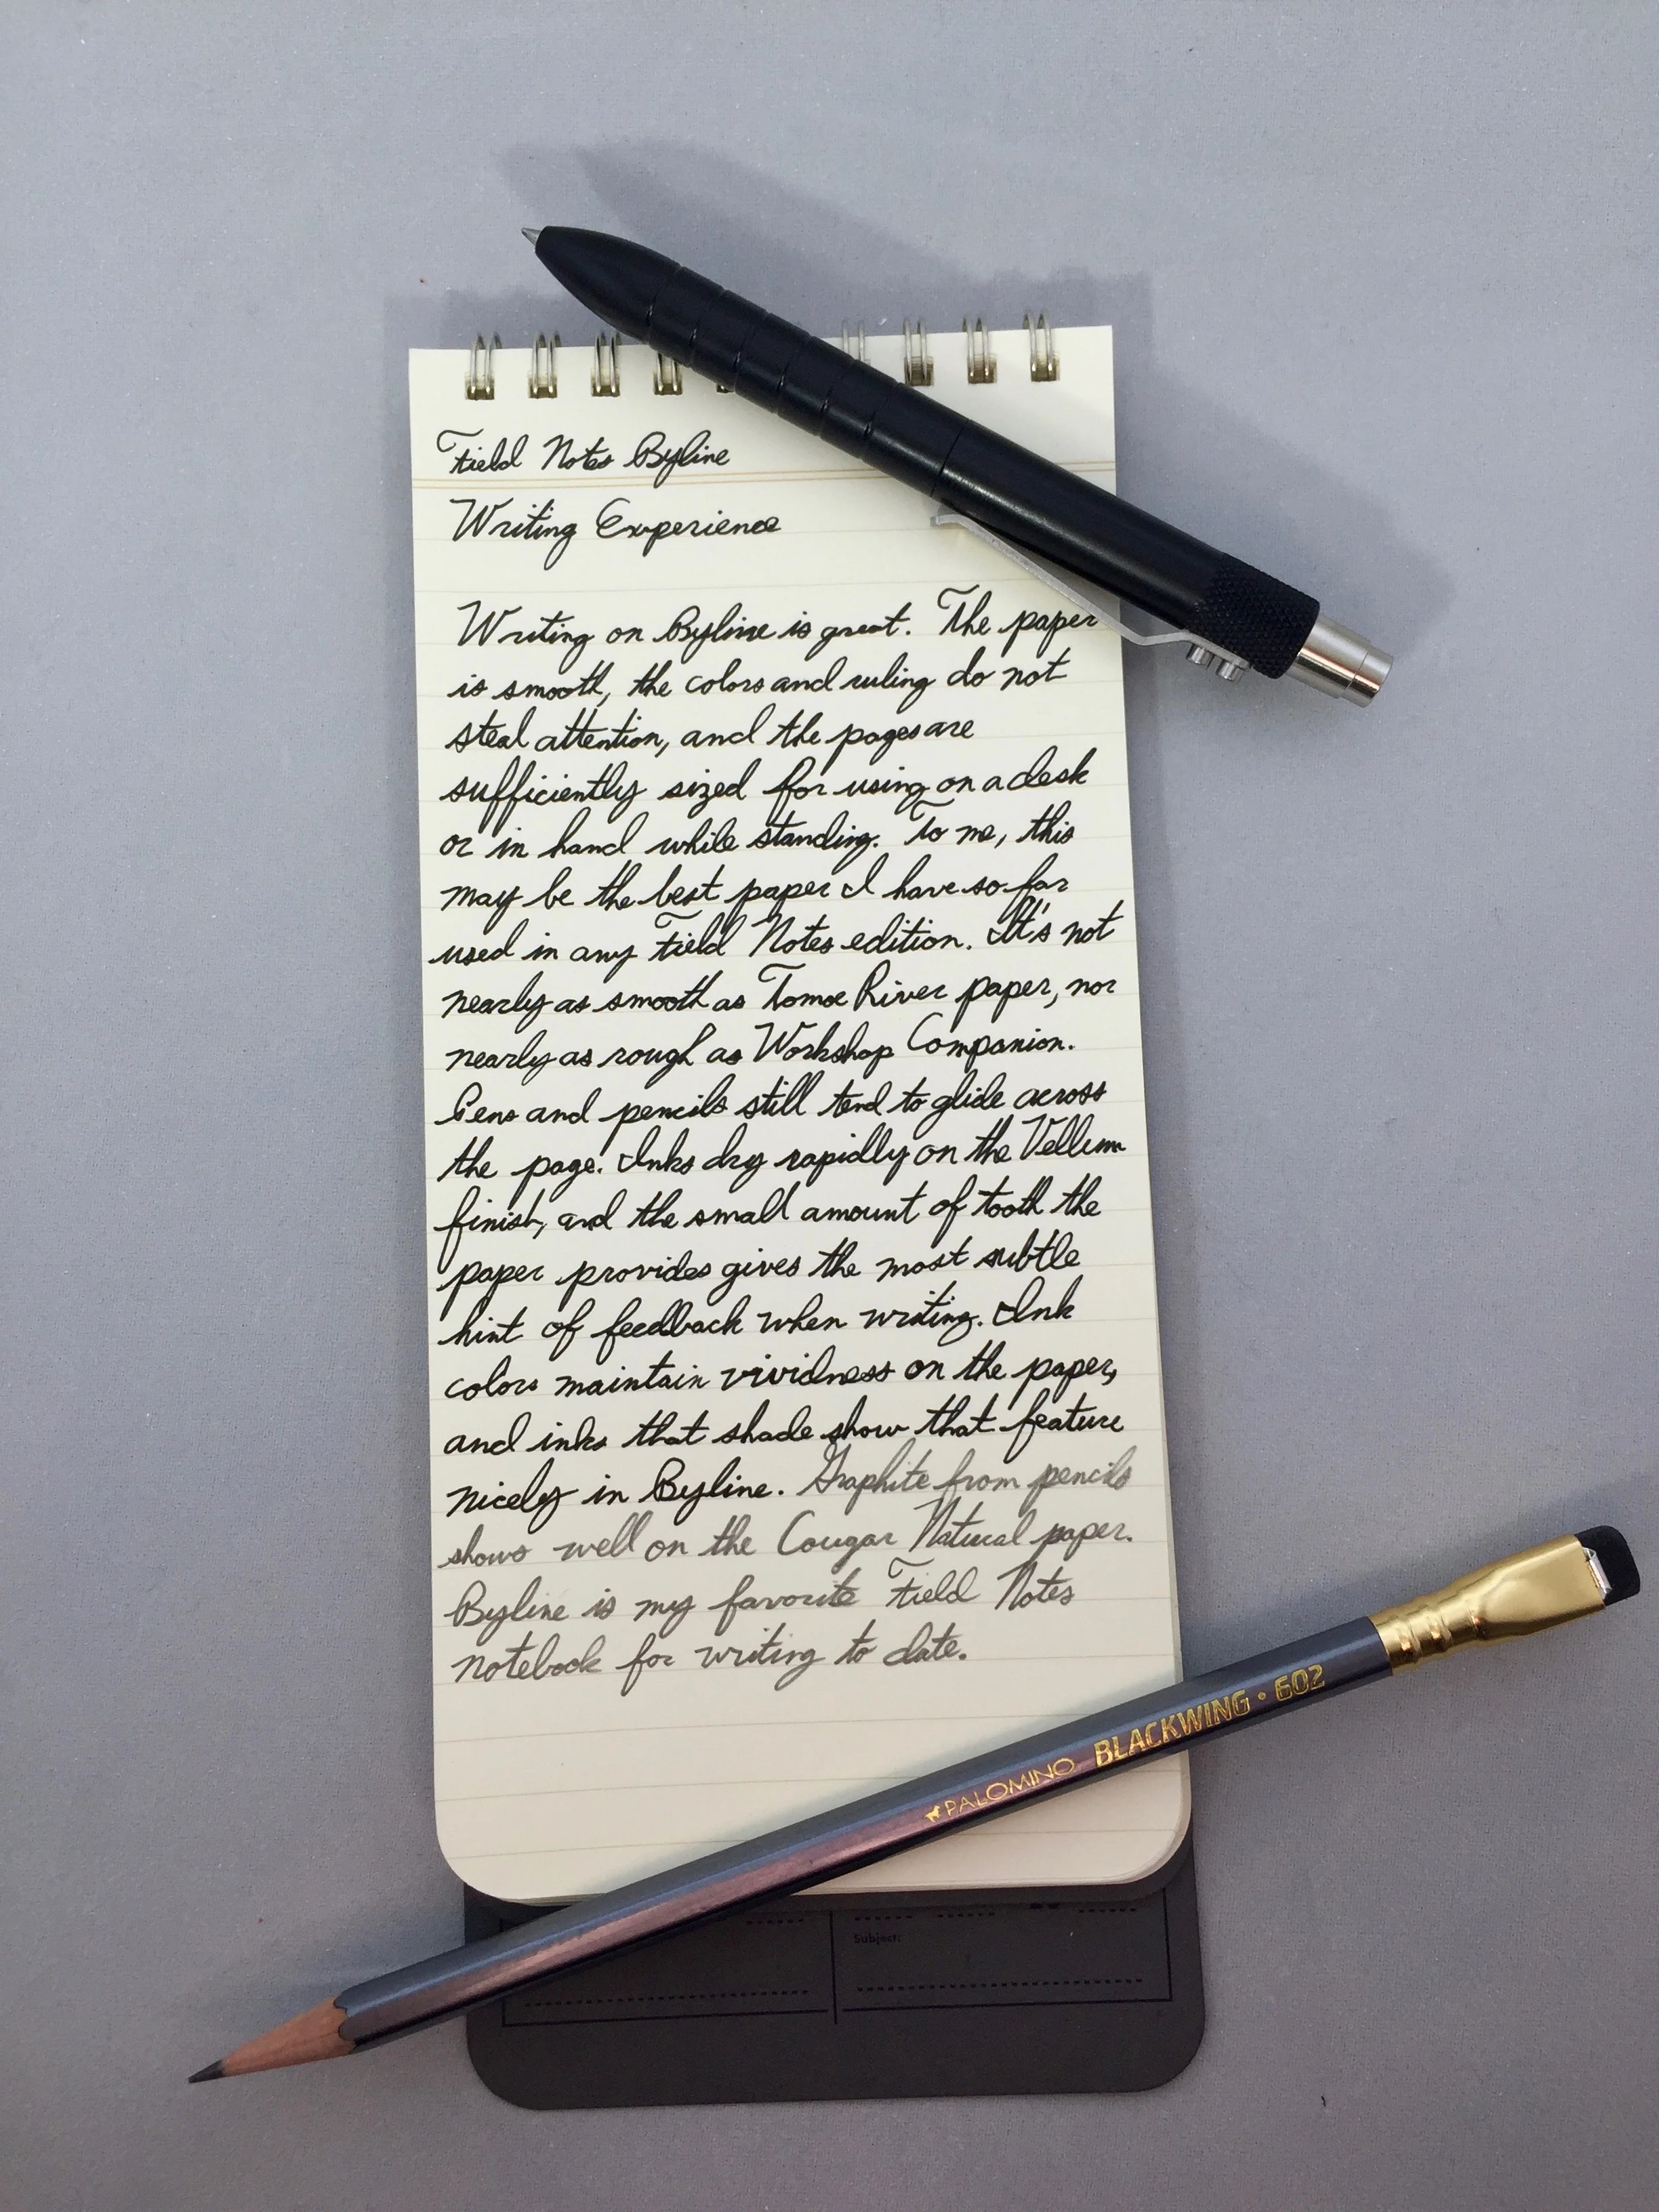 Field Notes Byline
Writing Experience
Writing on Byline is great. The paper
is smooth, the colors and ruling do not
steal attention, and the pages are
sufficiently sized for using on a desk
or in hand while standing. To me, this
may be the best paper I have so far
used in any Field Notes edition. It's not
nearly as smooth as Tomoe River paper, nor
nearly as rough as Workshop Companion.
Pens and pencils still tend to glide across
the page. Inks dry rapidly on the Vellum
finish, and the small amount of tooth the
paper provides gives the most subtle
hint of feedback when writing. Ink
colors maintain vividness on the paper,
and inks that shade show that feature
nicely in Byline. Graphite from pencils
shows well on the Cougar Natural paper.
Byline is my favorite Field Notes
notebook for writing to date.
PALOMINO BLACKWING • 602
Subject: